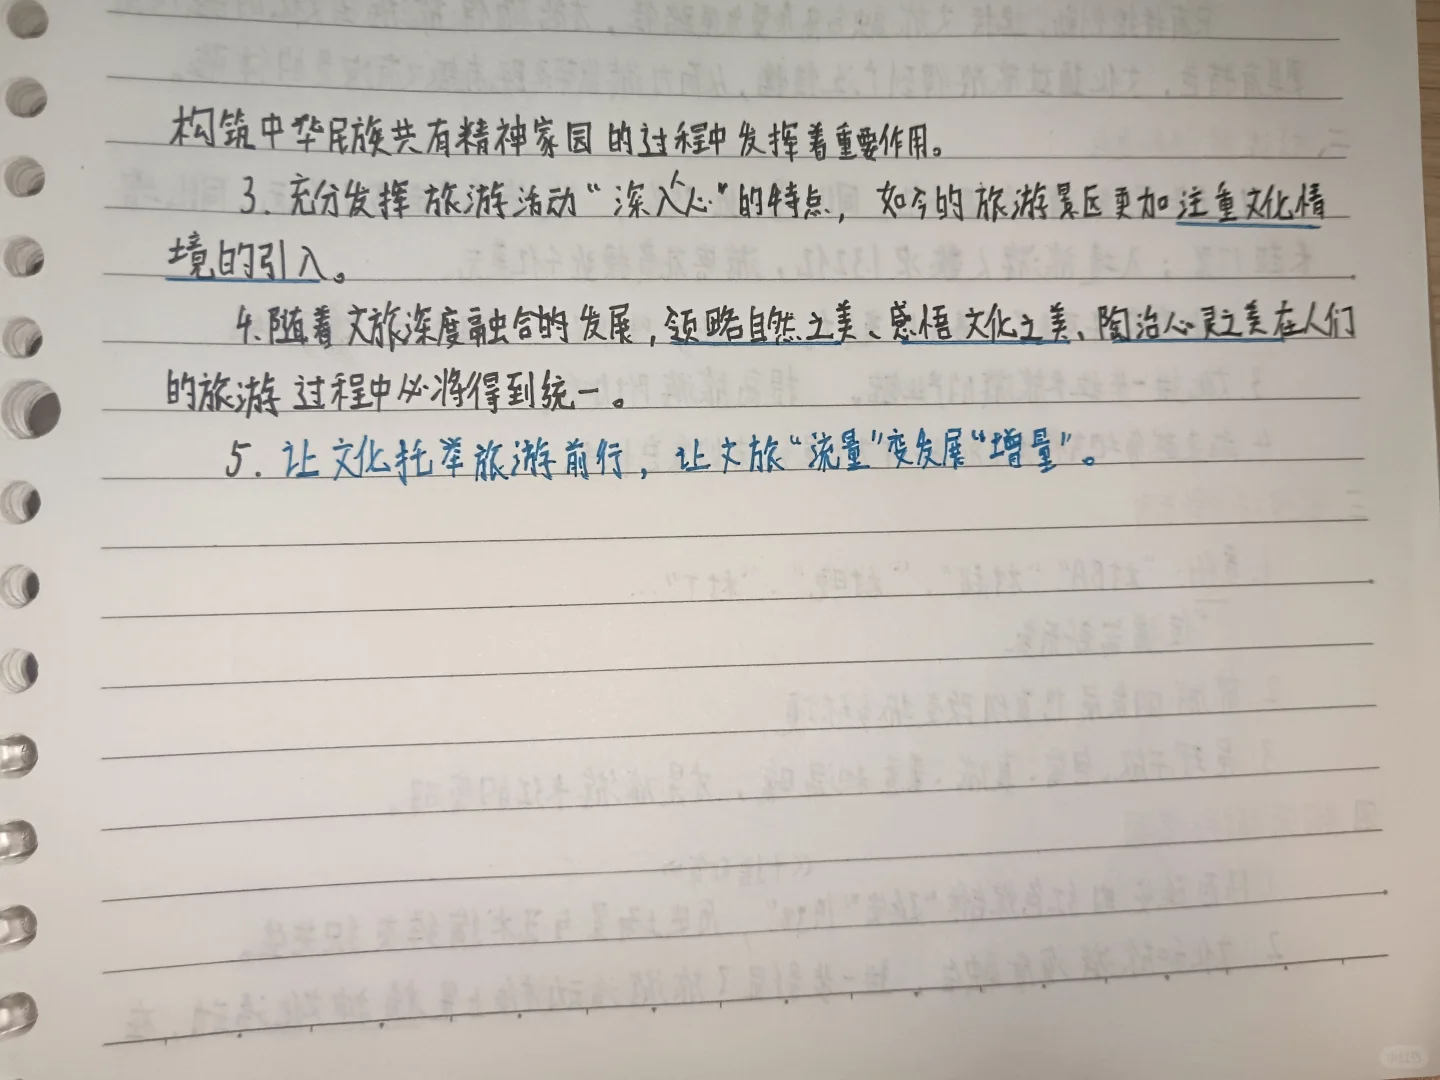 构筑中华民族共有精神家园的过程中发挥着重要作用。
3. 充分发挥旅游活动“深入人心”的特点，如今的旅游景区更加注重文化情
境的引入。
4. 随着文旅深度融合的发展，领略自然之美、感悟文化之美、陶冶心灵之美在人们
的旅游过程中必将得到统一。
5. 让文化托举旅游前行，让文旅“流量”变发展“增量”。